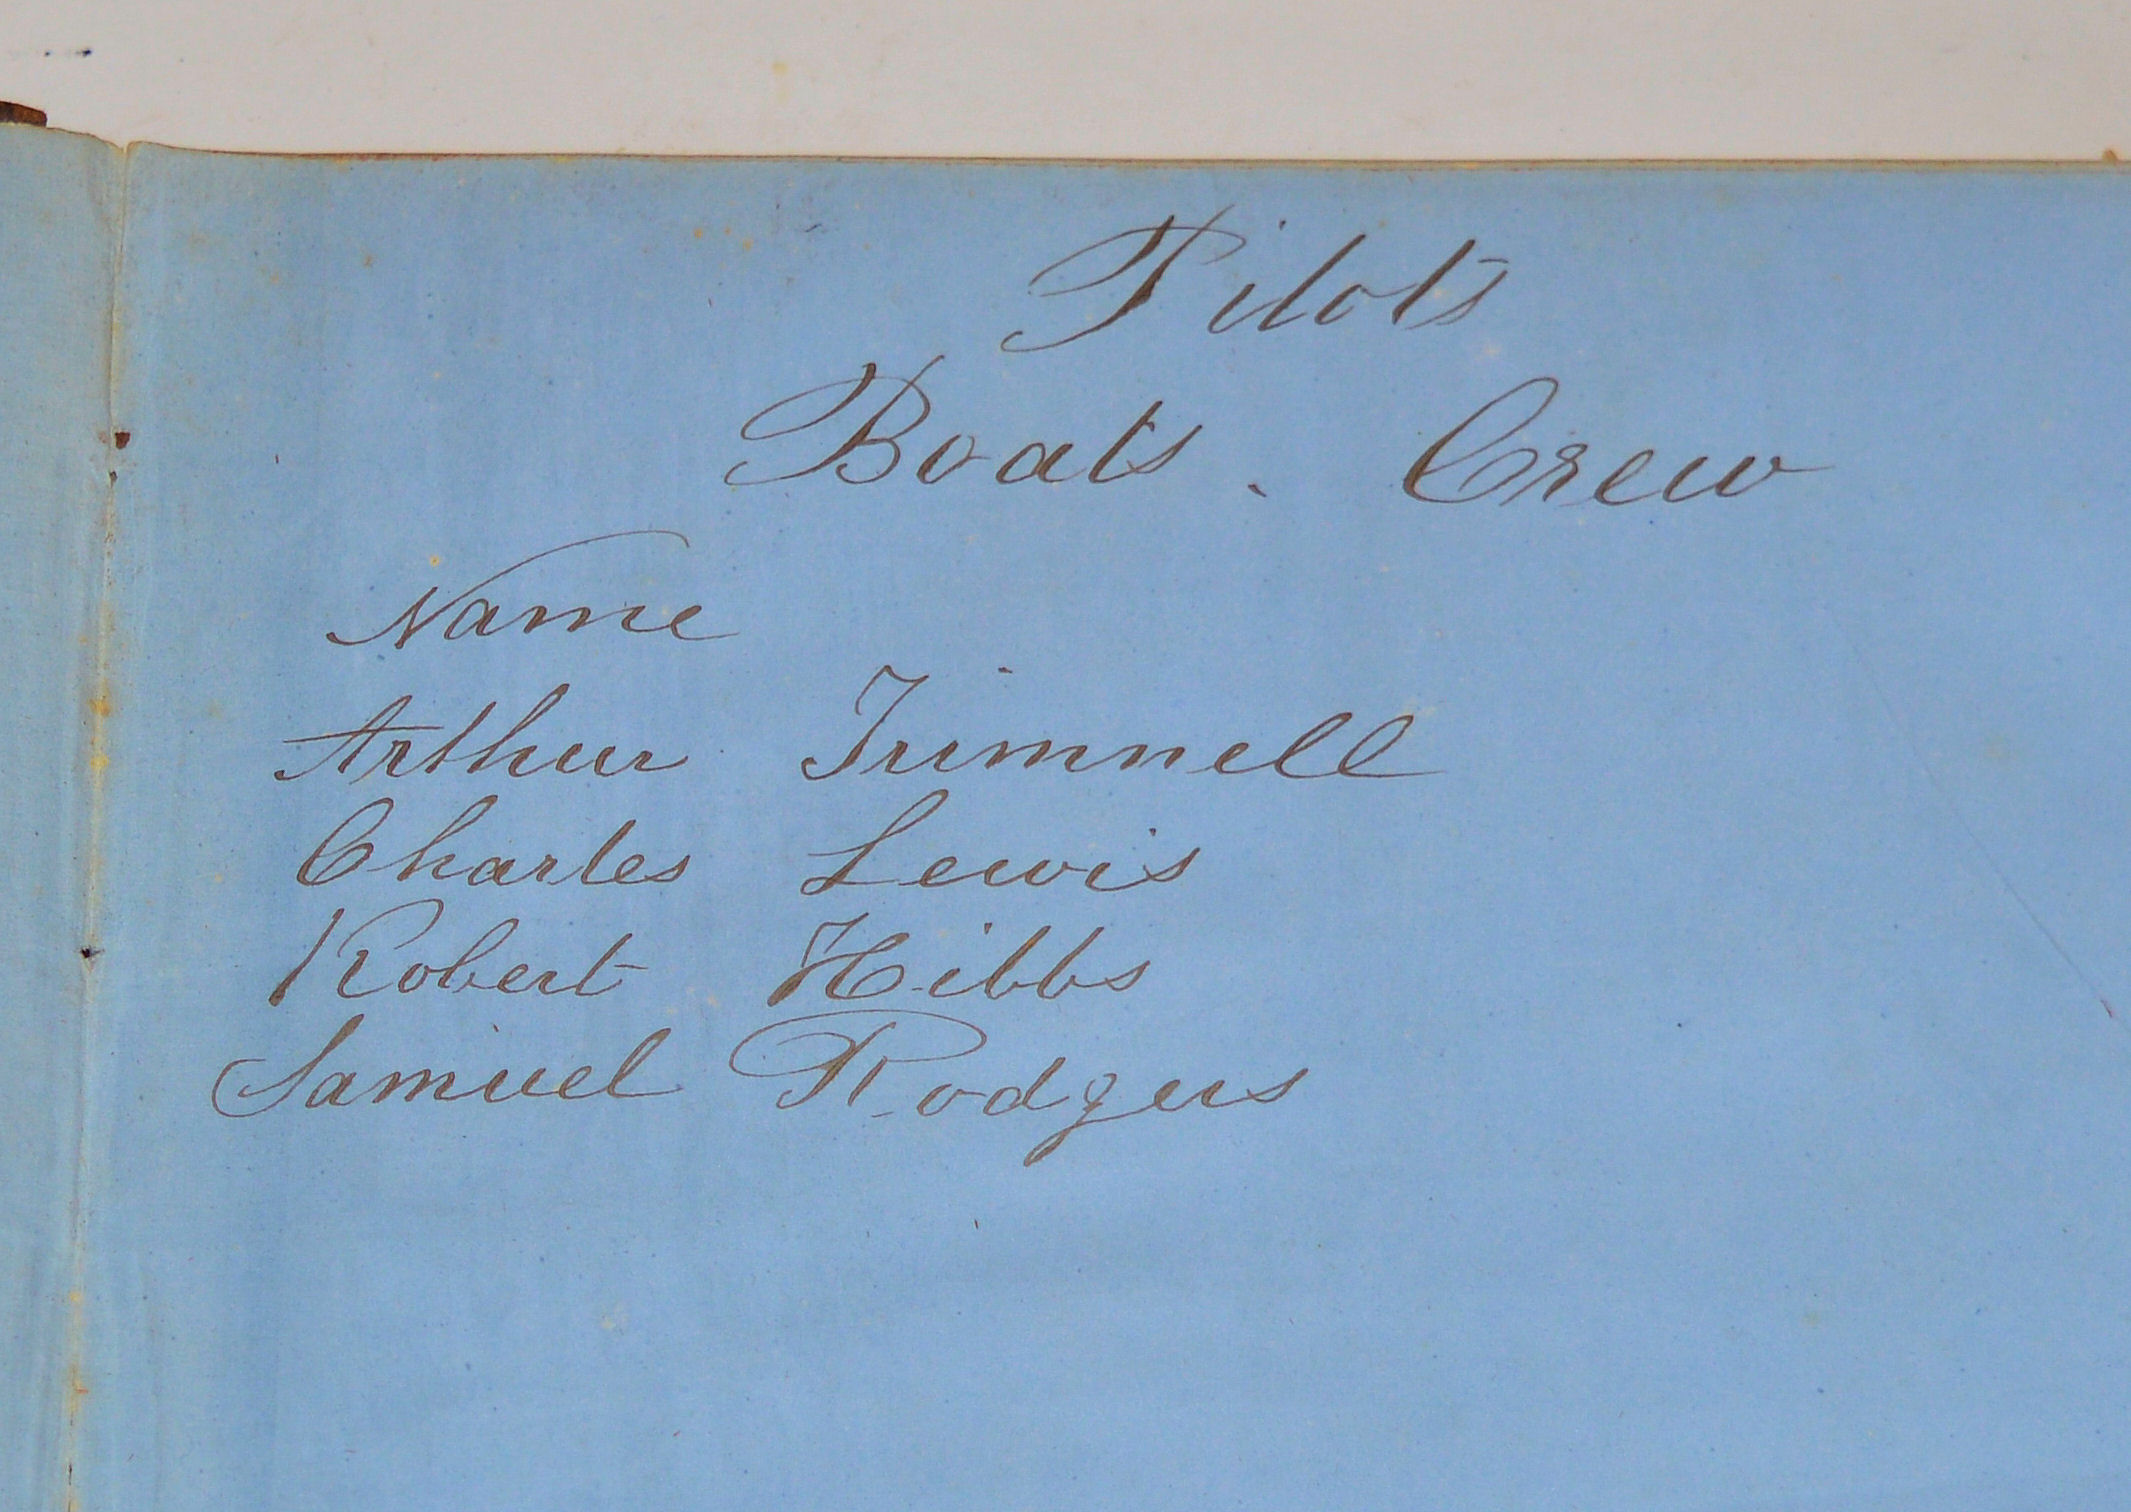 Pilots
Boats. Crew
Name
Arthur Trimnell
Charles Lewis
Robert Hibbs
Samuel Rodgers